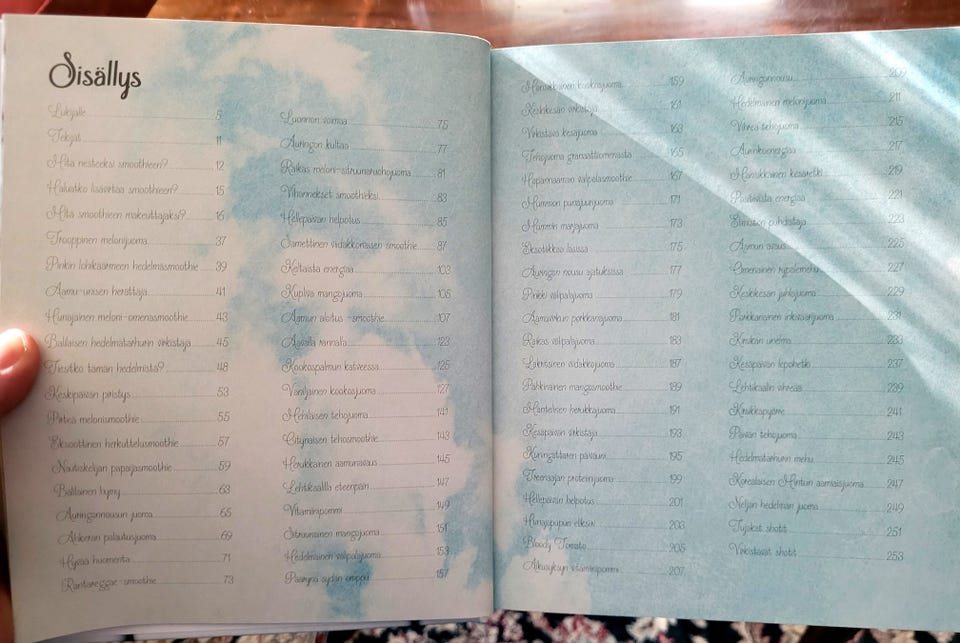 Sisällys
Lukijalle 5
Tekijät 11
Mitä nesteeksi smoothieen? 12
Haluatko lisäarvoa smoothieen? 15
Mitä smoothieen makeuttajaksi? 16
Trooppinen melonijuoma 37
Pinkin lohikäärmeen hedelmäsmoothie 39
Aamu-unisen herättäjä 41
Hunajainen meloni-omenasmoothie 43
Balilaisen hedelmätarhurin virkistäjä 45
Tiesitkö tämän hedelmistä? 48
Keskipäivän piristys 53
Pirteä melonismoothie 55
Eksoottinen herkuttelusmoothie 57
Nautiskelijan papaijasmoothie 59
Balilainen hymy 63
Auringonnousun juoma 65
Ahkeran palautusjuoma 69
Hyvää huomenta 71
Rantareggae-smoothie 73
Luonnon voimaa 75
Auringon kultaa 77
Raikas meloni-sitruunaruohojuoma 81
Vihannekset smoothieksi 83
Hellepäivän helpotus 85
Samettinen viidakkomaisen smoothie 87
Keltaista energiaa 103
Kupliva mangojuoma 105
Aamun aloitus -smoothie 107
Aavalla rannalla 123
Kookospalmun katveessa 125
Vaniljainen kookosjuoma 127
Mehiläisen tehojuoma 141
Citynaisen tehosmoothie 143
Herukkainen aamunavaus 145
Lehtikaalilla eteenpäin 147
Vitamiinipommi 149
Sitruunainen mangojuoma 151
Hedelmäinen välipalajuoma 153
Päärynä sydän omppu 157
159
Keskikesän virkistäjä 161
Virkistävä kesäjuoma 163
Tehojuoma granaattiomenasta 165
Hapannaaman välipalasmoothie 167
Mummon punajuurijuoma 171
Mummin marjajuoma 173
Eksotiikkaa lasissa 175
Auringon nousu ajatuksissa 177
Pinkki välipalajuoma 179
Aamuvirkun porkkanajuoma 181
Raikas välipalajuoma 183
Lakritsainen viidakkojuoma 187
Pähkinäinen mangosmoothie 189
Mantelisen herukkajuoma 191
Kesäpäivän virkistäjä 193
Kuningattaren päiväuni 195
Treenaajan proteiinijuoma 199
Hellepäivän helpotus 201
Hunajapupun eliksiiri 203
Bloody Tomato 205
Alkusyksyn vitamiinipommi 207
Auringonnousu 209
Hedelmäinen melonijuoma 211
Vihreä tehojuoma 215
Aurinkoenergiaa 217
Mansikkainen kesäretki 219
Positiivista energiaa 221
Elimistön puhdistaja 223
Aamun avaus 225
Omenainen rypälemehu 227
Keskikesän juhlajuoma 229
Porkkanainen inkiväärijuoma 231
Kirsikan unelma 233
Kesäpäivän lepohetki 237
Lehtikaalin vihreää 239
Kurkkupyörre 241
Päivän tehojuoma 243
Hedelmätarhurin mehu 245
Korealaisen Mintun aamiaisjuoma 247
Neljän hedelmän juoma 249
Tujakat shotit 251
Virkistävät shotit 253